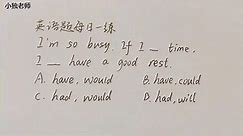 小独老师
英语题每日一练
I'm so busy. If I _ time,
I _ have a good rest.
A. have, would B. have, could
C. had, would D. had, will